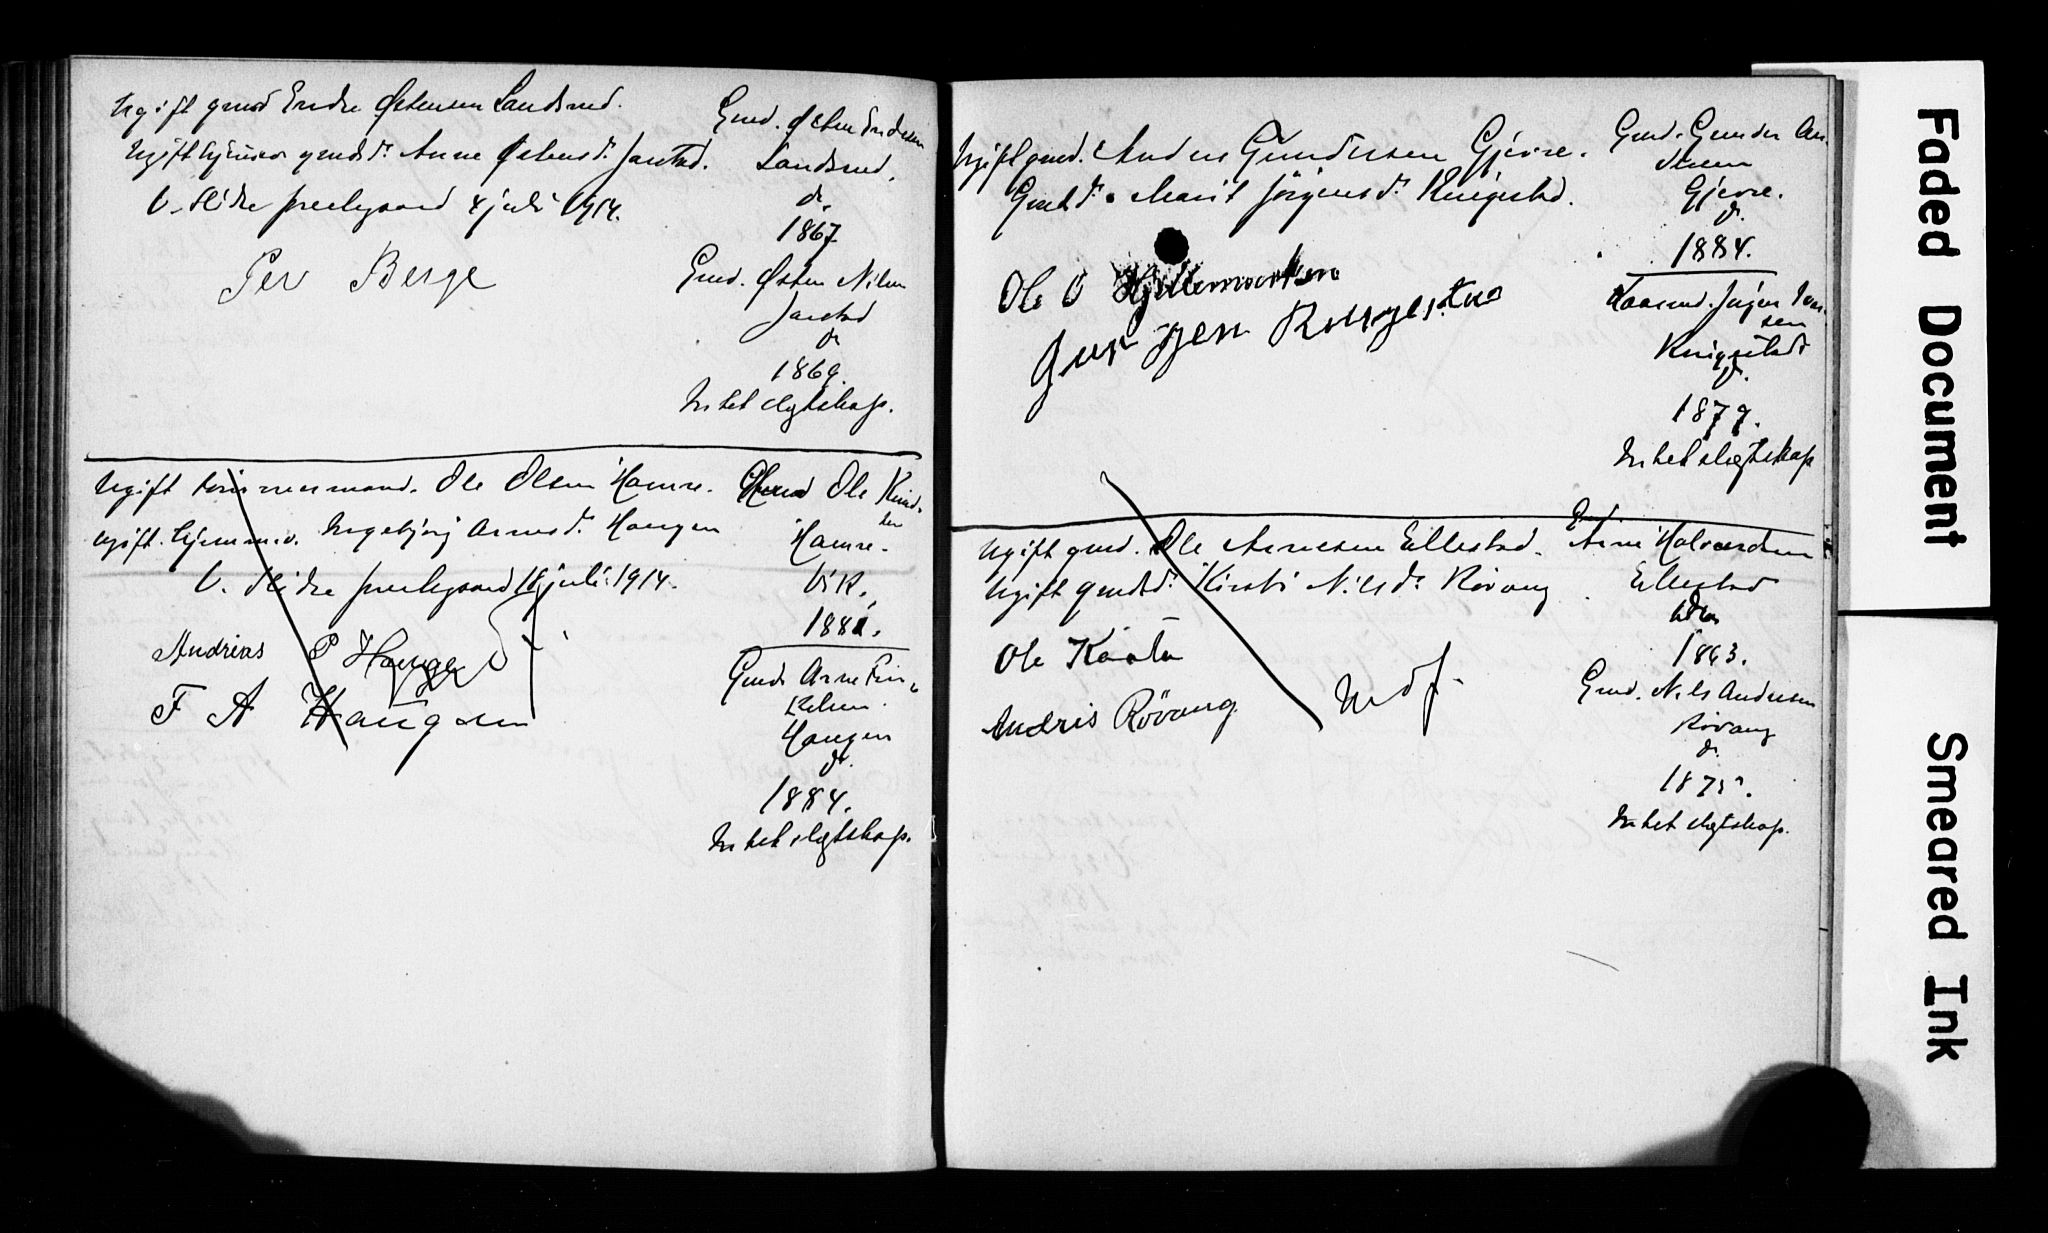 Ugift gmd Endre Østensen Landsend.
Ugift hjemmev gmdsdr. Anne Østensdr. Jarstad.
V. Slidre prestegaard 4 juli 1914.
Per Berge
Gmd. Østen Endresen
Landsend.
do.
1867
Gmd. Østen Nilsen
Jarstad
do
1869.
Intet slegtskap.
Ugift tømmermand. Ole Olsen Hamre.
ugift hjemmev. Ingebjørg Arnesdr. Haugen
V. Slidre prestegaard 18 juli 1914.
Andrias P Hauge
F A Haugen
Ole Knud-
sen
Hamre.
Vik.
1881.
Gmd. Arne Fin-
kelsen.
Haugen
do.
1884.
Intet slegtskap.
Ugift gmd. Andris Gundersen Gjevre.
Gmdsdr. Marit Jørgensdr. Knigestad.
Ole O
Jørgen
Gmd. Gunder An-
dersen
Gjevre.
do.
1884.
Jørgen Iver-
sen
Knigestad
do.
1879.
Intet slegtskap
Ugift gmd. Ole Arnesen Ellestad.
Ugift gmdsdr. Kirsti Nilsdr. Røvang
Ole
Andris Røvang
Gmd
Arne Halvordsen
Ellestad
1863.
Gmd. Nils Andersen
Røvang
do.
1875.
Intet slegtskap.
Faded Document
Smeared Ink